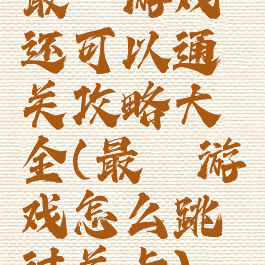 最 游戏
还可以通
关攻略大
全(最 游
戏怎么跳
过关卡)